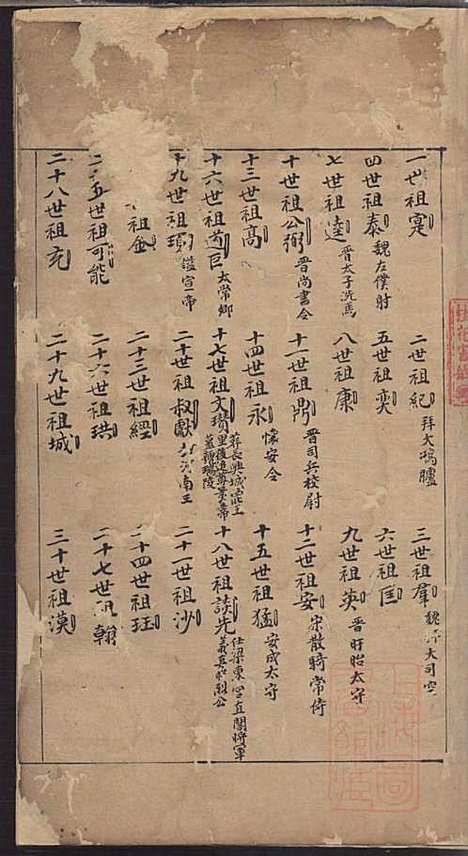 一世祖寔 二世祖紀 拜大鴻臚 三世祖羣 魏 大司空
四世祖泰 魏左僕射 五世祖奕 六世祖匡
七世祖逵 晋太子洗馬 八世祖康 九世祖英 晋盱眙太守
十世祖公弼 晋尚書令 十一世祖鼎 晋司兵校尉 十二世祖安 宋散騎常侍
十三世祖高 十四世祖永 懷安令 十五世祖猛 安成太守
十六世祖道巨 太常卿 十七世祖文瓚 葬長興城 里後追尊景帝 墓稱瑞陵 十八世祖談先 仕梁東宮直閣將軍 義興昭烈公
十九世祖 宣帝 二十世祖叔獻 河南王 二十一世祖沙
祖金 二十三世祖經 二十四世祖玨
二十五世祖可能 二十六世祖珙 二十七世祖翰
二十八世祖充 二十九世祖城 三十世祖漠